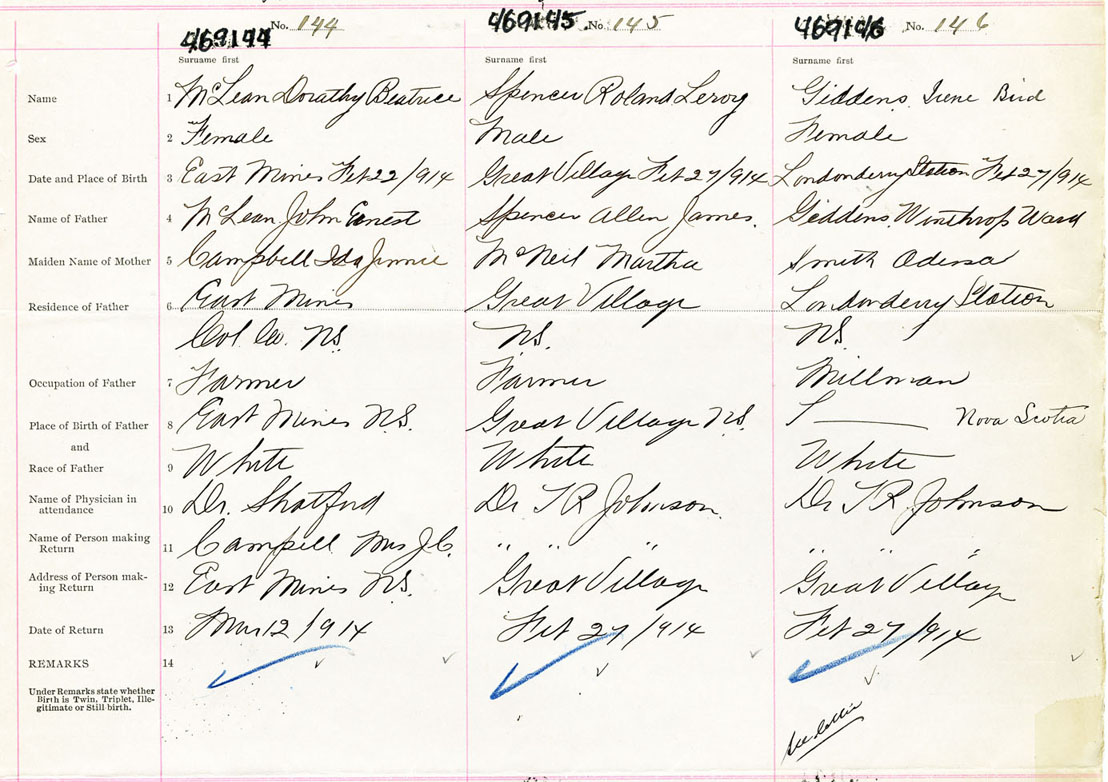 469144 No. 144 469145 No. 145 469146 No. 146
Surname first Surname first Surname first
Name 1 McLean Dorathy Beatrice Spencer Roland Leroy Giddens Irene Bird
Sex 2 Female Male Female
Date and Place of Birth 3 East Mines Feb 22/914 Great Village Feb 27/914 Londonderry Station Feb 27/914
Name of Father 4 McLean John Ernest Spencer Allen James. Giddens Winthrop Ward
Maiden Name of Mother 5 Campbell Ida Jennie McNeil Martha Smith Odessa
Residence of Father 6 East Mines Great Village Londonderry Station
Col. Co. N.S. N.S. N.S.
Occupation of Father 7 Farmer Farmer Millman
Place of Birth of Father 8 East Mines N.S. Great Village N.S. Nova Scotia
and
Race of Father 9 White White White
Name of Physician in
attendance 10 Dr. Shatford Dr T R Johnson Dr T R Johnson
Name of Person making
Return 11 Campell Mrs J.C. " " " " " "
Address of Person mak-
ing Return 12 East Mines N.S. Great Village Great Village
Date of Return 13 Mar 12/914 Feb 27/914 Feb 27/914
REMARKS 14
Under Remarks state whether
Birth is Twin, Triplet, Ille-
gitimate or Still-birth.